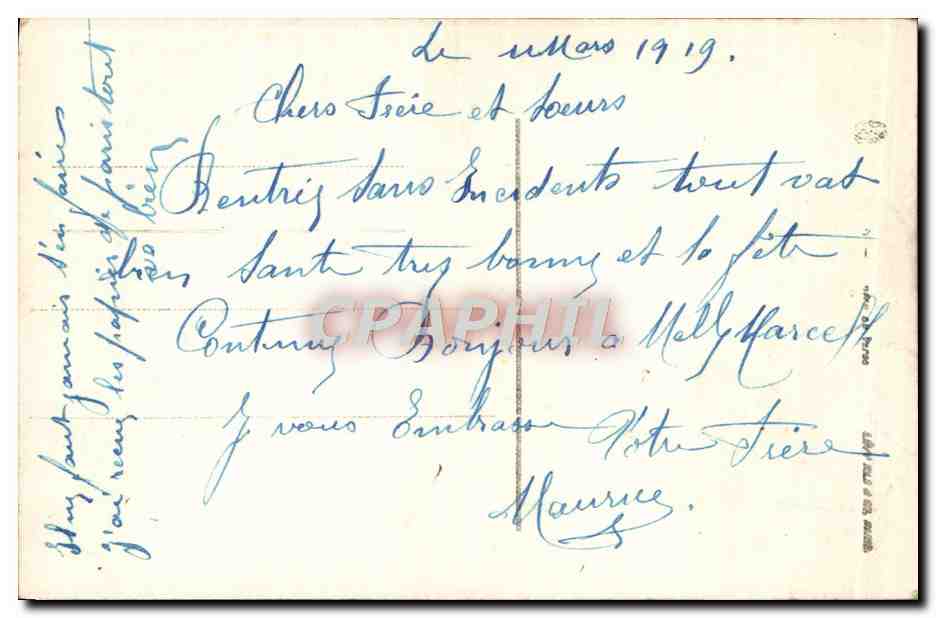 Le 11 Mars 1919.
Chers Frère et Soeurs
Rentrey Sans Incidents tout vat
bien Santé trey bonney et la fête
Contenuy Bonjour a Melly Marcell
Je vous Embrasse Votre Frère
Maurice.
Il ny faut jamais s'en faire
j'ai recuy les papiers de paris tout
va bien
CPARHIL